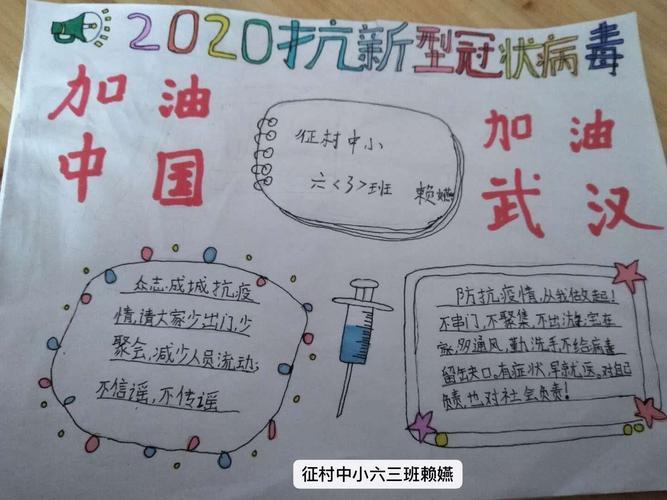 2020抗新型冠状病毒
加油
中国
征村中小
六<3>班 赖嬿
加油
武汉
众志成城抗疫
情,请大家少出门,少
聚会,减少人员流动;
不信谣,不传谣
防抗疫情,从我做起!
不串门,不聚集,不出法,宅在
家,多通风,勤洗手不给病毒
留缺口。有症状,早就医。对自己
负责,也对社会负责!
征村中小六三班赖嬿